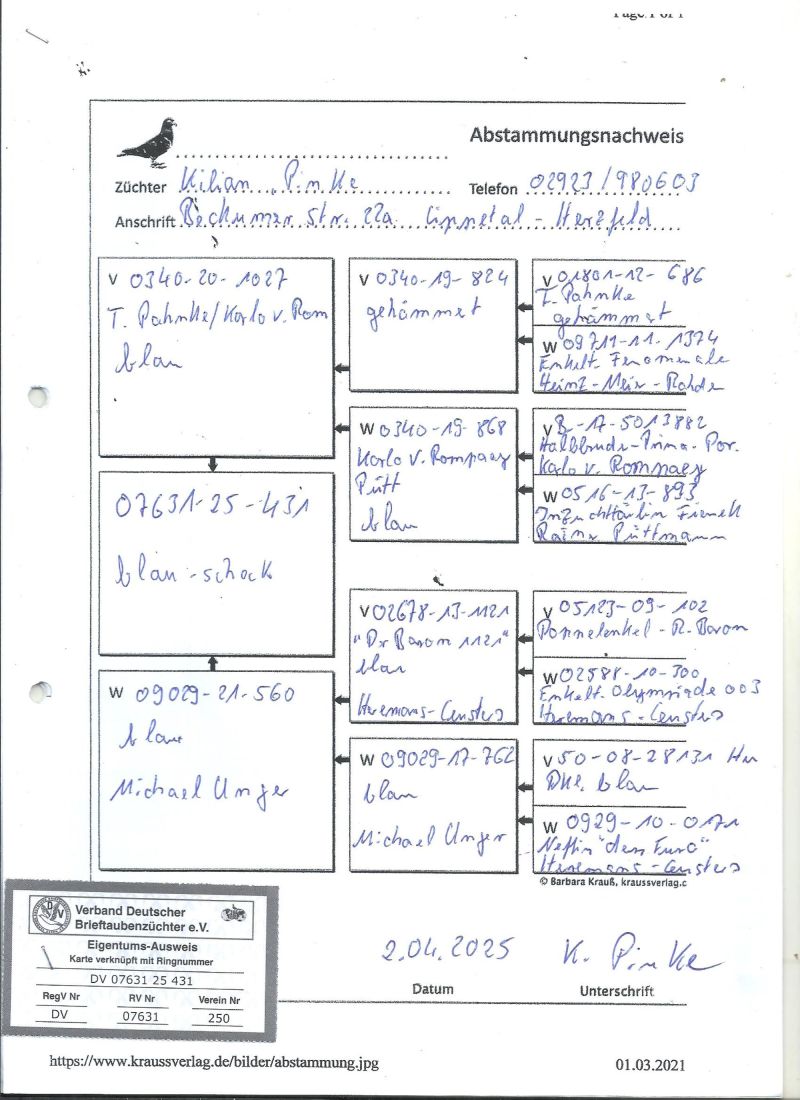 Page 1 of 1
Abstammungsnachweis
Züchter Kilian Pinke Telefon 02923/980603
Anschrift Beckumer Str. 22a Lippetal - Herzfeld
V 0340-20-1027
T. Pahnke/Karlo v. Rom
blau
V 0340-19-824
gehämmert
V 01801-12-686
T. Pahnke
gehämmert
W 09711-11-1374
Enkelt. Fenomenale
Heinz-Meir-Rohde
W 0340-19-868
Karlo v. Rompaey
Pütt
blau
V B-17-5013882
Halbbruder Prima-Por.
Karlo v. Rompaey
W 0516-13-893
Rainer Püttmann
07631-25-431
blau-scheck
V 02678-13-1121
"Dr Baron 1121"
blau
Heremans-Ceusters
V 05123-09-102
R. Baron
W 02588-10-300
Enkelt. Olympiade 003
Heremans-Ceusters
W 09029-21-560
blau
Michael Unger
W 09029-17-762
blau
Michael Unger
V 50-08-28131 Hu
Dkl. blau
W 0929-10-0171
Neffin "den Euro"
Heremans-Ceusters
© Barbara Krauß, kraussverlag.c
DV
Verband Deutscher
Brieftaubenzüchter e.V.
Eigentums-Ausweis
Karte verknüpft mit Ringnummer
DV 07631 25 431
RegV Nr RV Nr Verein Nr
DV 07631 250
2.04.2025 K. Pinke
Datum Unterschrift
https://www.kraussverlag.de/bilder/abstammung.jpg 01.03.2021